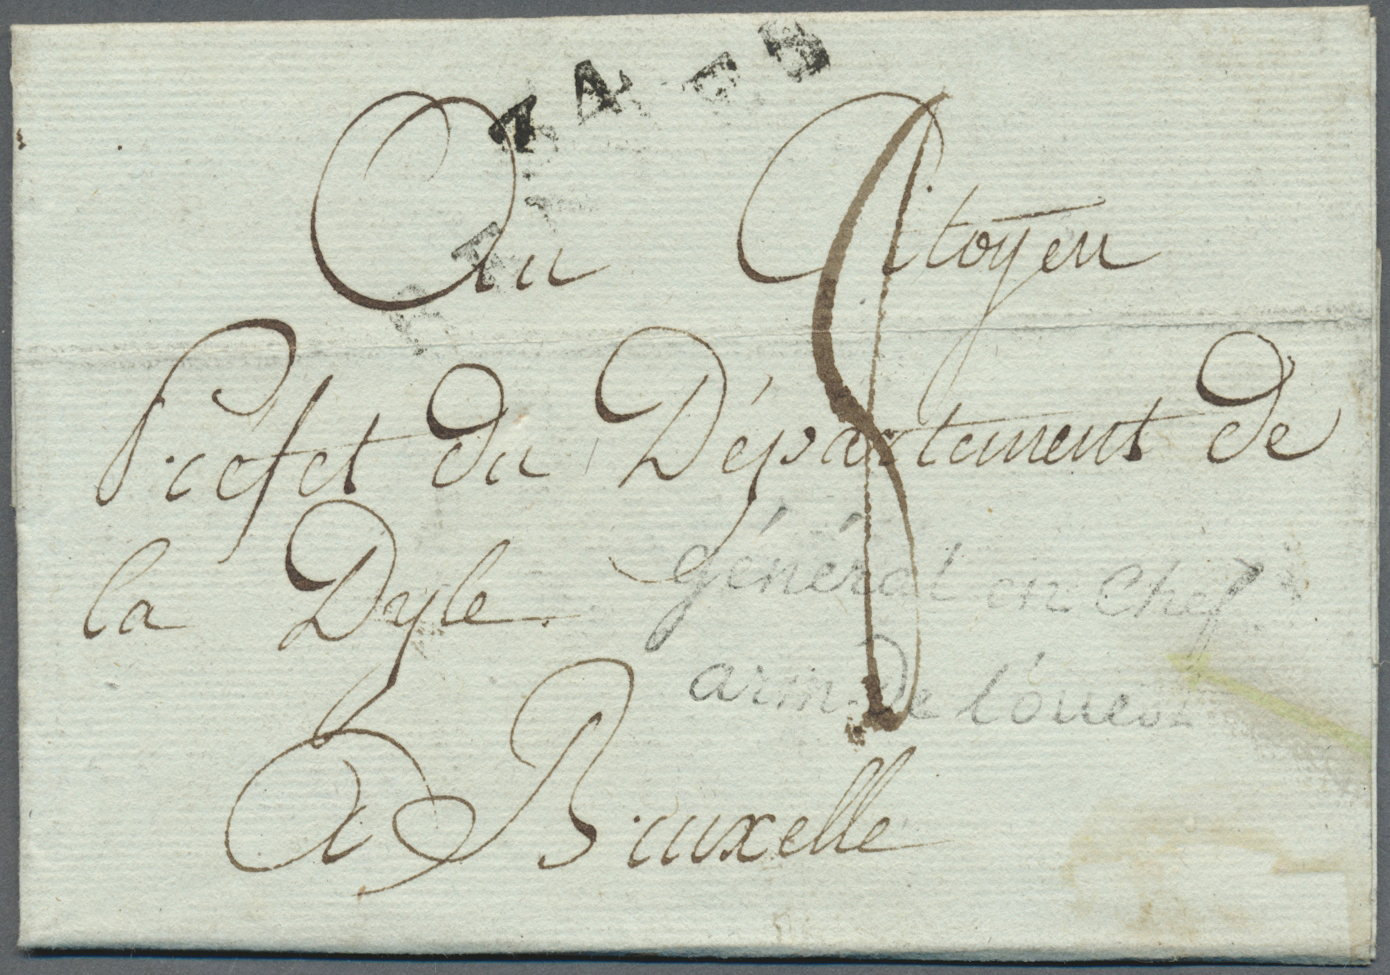 74
Au Citoyen
8
Préfet du Département de
la Dyle.
général en chef
arm. De l'ouest
A Bruxelle